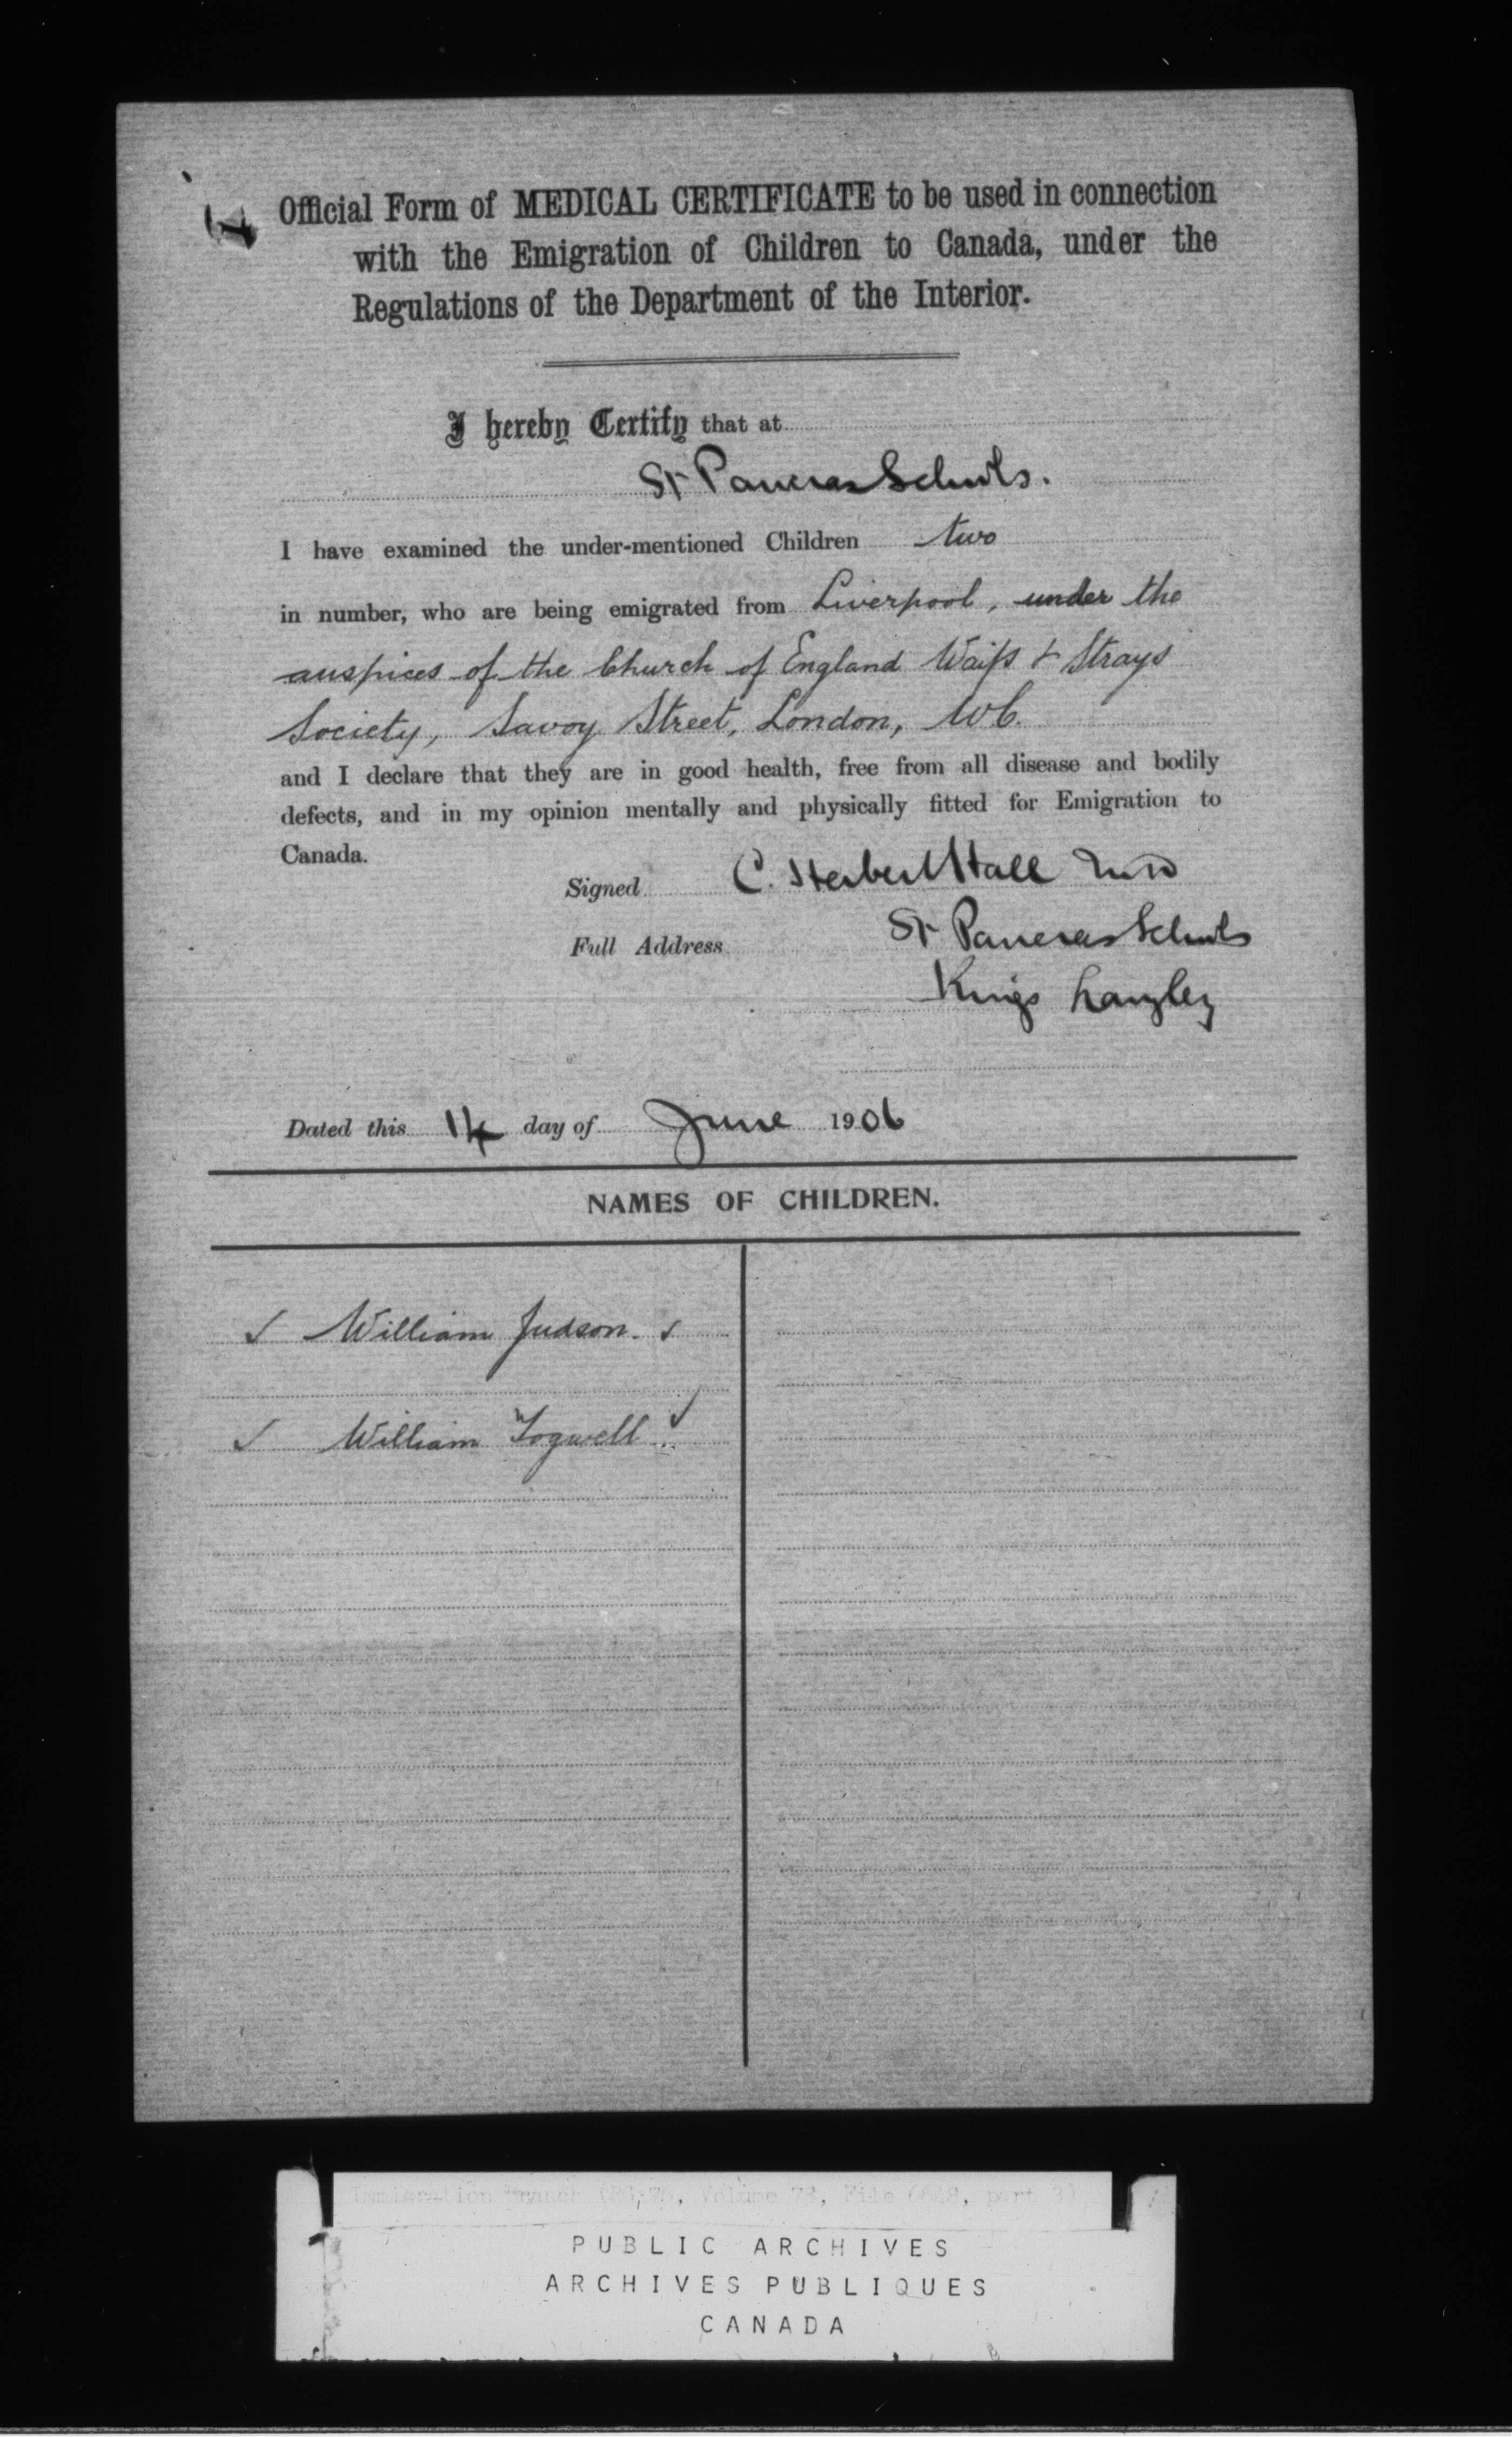 Official Form of MEDICAL CERTIFICATE to be used in connection
with the Emigration of Children to Canada, under the
Regulations of the Department of the Interior.
I hereby Certify that at
St Pancras Schools.
I have examined the under-mentioned Children two
in number, who are being emigrated from Liverpool, under the
auspices of the Church of England Waifs & Strays
Society, Savoy Street, London, WC.
and I declare that they are in good health, free from all disease and bodily
defects, and in my opinion mentally and physically fitted for Emigration to
Canada.
Signed C. Herbert Hall MD
Full Address St Pancras Schools
Kings Langley
Dated this 14 day of June 1906
NAMES OF CHILDREN.
✓ William Judson. ✓
✓ William Togwell. ✓
Immigration Branch (RG 76, Volume 78, File 6648, part 3)
PUBLIC ARCHIVES
ARCHIVES PUBLIQUES
CANADA